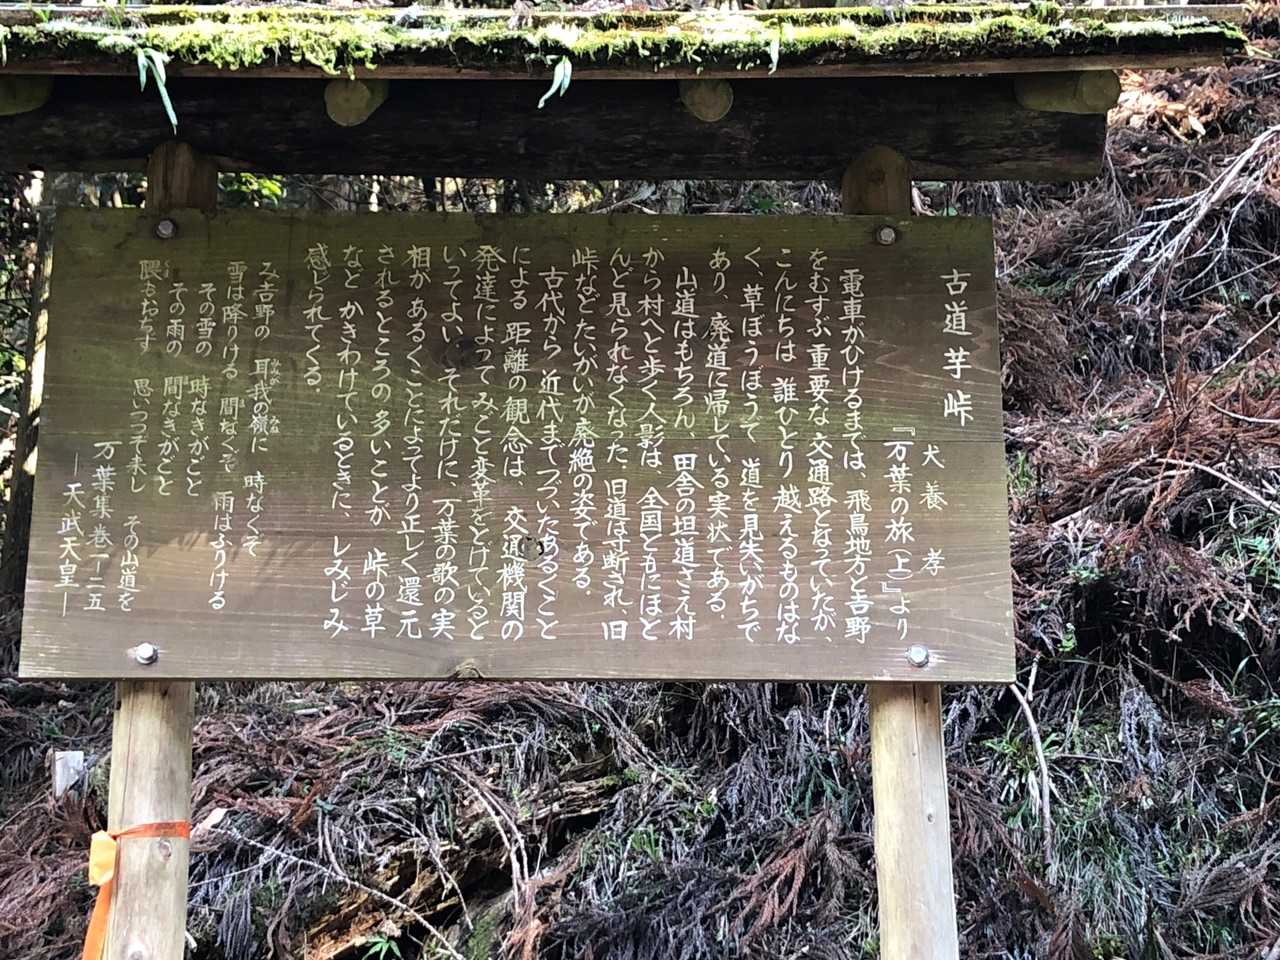 古道芋峠
犬養 孝
『万葉の旅(上)』より
電車がひけるまでは、飛鳥地方と吉野
をむすぶ重要な交通路となっていたが、
こんにちは 誰ひとり越えるものはな
く、草ぼうぼうて 道を見失いがちで
あり、廃道に帰している実状である。
山道はもちろん、田舎の坦道さえ村
から村へと歩く人影は、全国ともにほと
んど見られなくなった、旧道は寸断され、旧
峠などたいがいが廃絶の姿である。
古代から 近代までつづいたあるくこと
による 距離の観念は、交通機関の
発達によってみごと変革をとげていると
いってよい、それだけに、万葉の歌の実
相が あるくことによってより正しく還元
されるところの多いことが 峠の草
など かきわけているときに、しみじみ
感じられてくる。
み吉野の 耳我の嶺に 時なくぞ
雪は降りける 間なくぞ 雨はふりける
その雪の 時なきがごと
その雨の 間なきがごと
隈もおちず 思いつつぞ来し その山道を
万葉集巻一-二五
―天武天皇―